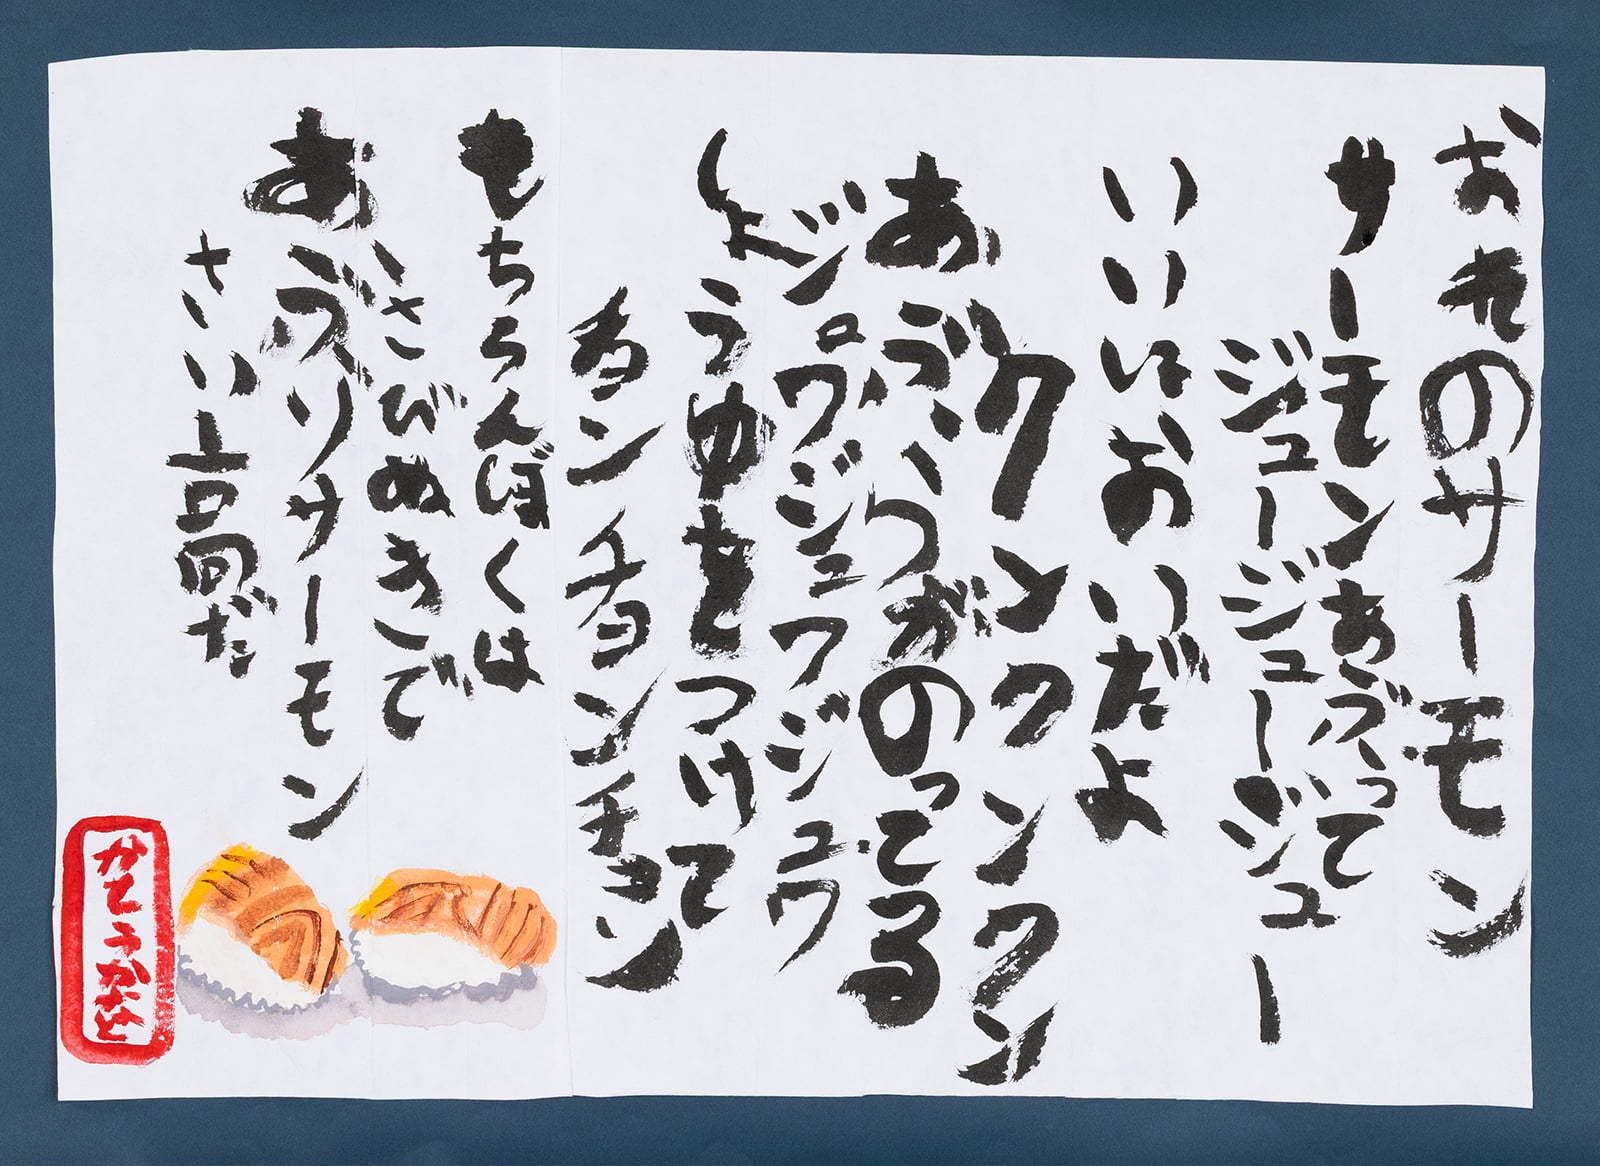 おれのサーモン
サーモンあぶって
ジュージュージュー
いいにおいだよ
クンクンクン
あぶらがのってる
ジュワジュワジュワ
しょうゆをつけて
チョンチョンチョン
もちろんぼくは
わさびぬきで
あぶリサーモン
さい高だ
かとうかなと